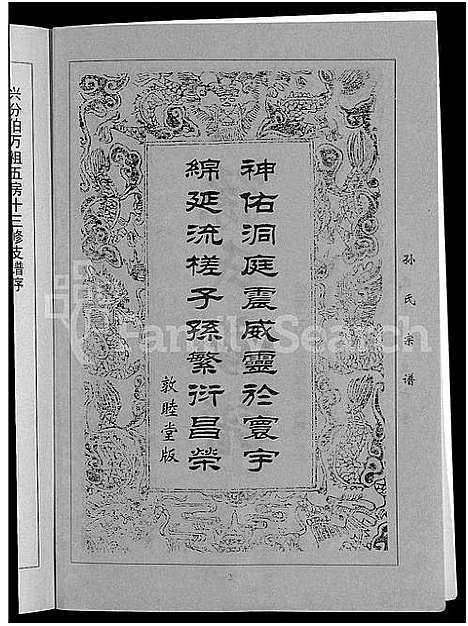 孙氏宗谱
神佑洞庭震威靈於寰宇
綿延流槎子孫繁衍昌榮
敦睦堂版
兴分伯万祖五房十三修支谱序
FamilySearch
2